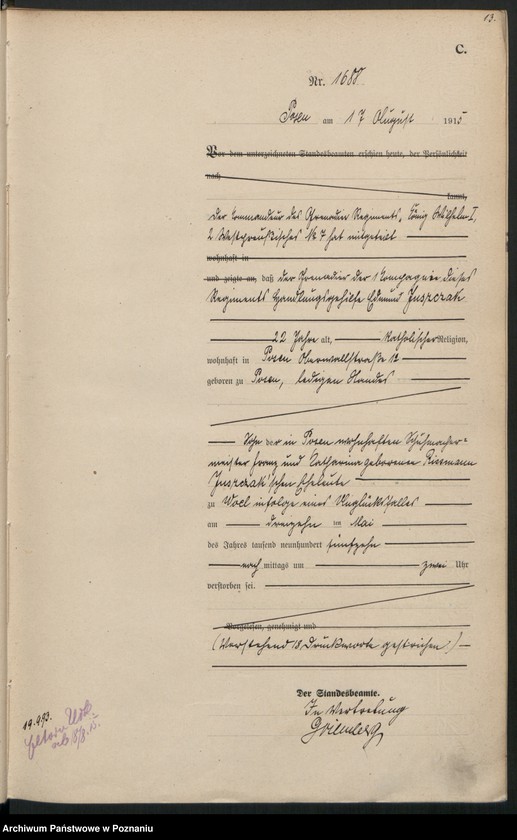 13.
C.
Nr. 1688
Posen am 17 August 1915
Vor dem unterzeichneten Standesbeamten erschien heute, der Persönlichkeit
nach
kannt,
der Kommandeur des Grenadier Regiments, König Wilhelm I,
2 Westpreußisches Nr 7 hat mitgeteilt
wohnhaft in
und zeigte an, daß der Grenadier der 1 Kompagnie dieses
Regiments Handlungsgehilfe Edmund Juszczak
22 Jahre alt, katholischer Religion,
wohnhaft in Posen Oberwallstraße
geboren zu Posen, ledigen Standes
Sohn der in Posen wohnhaften Schuhmacher=
meister Franz und Katharina geborenen
Juszczak'schen Eheleute
zu infolge eines Unglücksfalles
am dreizehn ten Mai
des Jahres tausend neunhundert fünfzehn
nach mittags um zwei Uhr
verstorben sei.
Vorgelesen, genehmigt und
(Vorstehend 18 Druckworte gestrichen.)
Der Standesbeamte.
In Vertretung
19.993.
18/8.15.
Archiwum Państwowe w Poznaniu